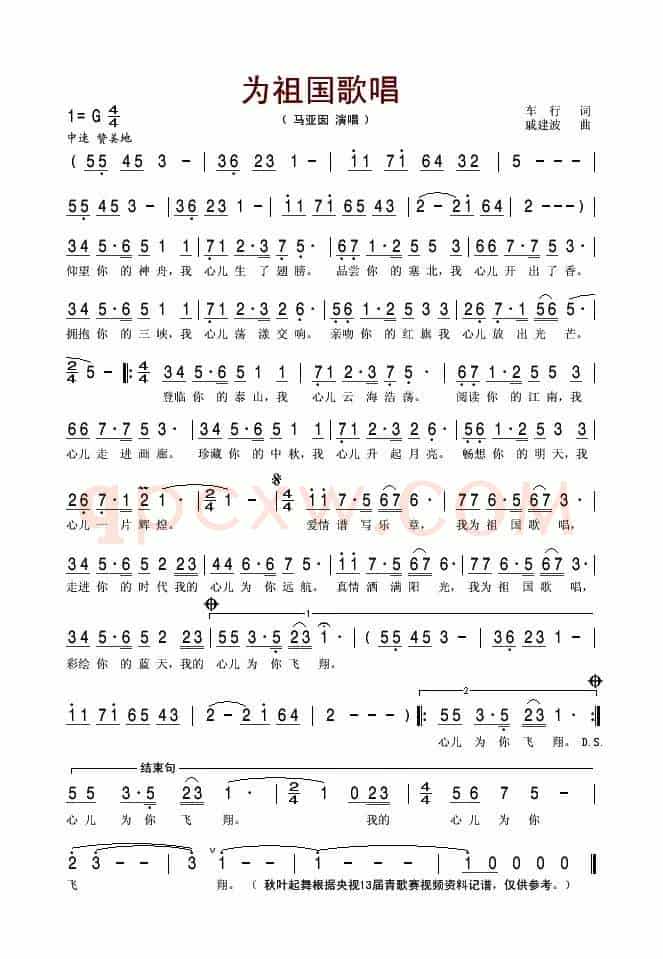 为祖国歌唱
（马亚囡 演唱）
1=G 4/4
车行 词
戚建波 曲
中速 赞美地
( 55 45 3 - | 36 23 1 - | 11 71 64 32 | 5 - - - |
55 45 3 - | 36 23 1 - | 11 71 645 43 | 2 - 21 64 | 2 - - - ) |
34 5·6 5 1 1 | 71 2·3 7 5· | 56 1·2 5 3 3 | 66 7·7 5 3· |
仰望 你 的 神 舟，我 心儿 生 了 翅 膀。 品尝 你 的 塞 北，我 心儿 开 出 了 香。
34 5·6 5 1 1 | 71 2·3 7 5· | 56 1·2 5 3 3 | 26 7·1 56 5 |
拥抱 你 的 三 峡，我 心儿 荡 漾 交 响。 亲吻 你 的 红 旗 我 心儿 放 出 光 芒。
2/4 5 - |: 4/4 34 5·6 5 1 1 | 71 2·3 7 5· | 67 1·2 5 3 3 |
登临 你 的 泰 山，我 心儿 云 海 浩 荡。 阅读 你 的 江 南，我
66 7·7 5 3· | 34 5·6 5 1 1 | 71 2·3 7 5· | 67 1·2 5 3 3 |
心儿 走 进 画 廊。 珍藏 你 的 中 秋，我 心儿 升 起 月 亮。 畅想 你 的 明 天，我
26 7·1 2 1· | 2/4 1 - | 4/4 11 7·5 67 5· | 66 7·5 67 3· |
心儿 一 片 辉 煌。 爱情 谱 写 乐 章， 我为 祖 国 歌 唱，
34 5·6 5 2 23 | 44 4·6 7 5· | 11 7·5 67 5· | 66 7·5 67 3· |
走进 你 的 时 代 我的 心儿 为 你 远 航。 真情 洒 满 阳 光，我为 祖 国 歌 唱，
1
34 5·6 5 2 23 | 55 3·5 23 1· | ( 55 45 3 - | 36 23 1 - |
彩绘 你 的 蓝 天，我的 心儿 为 你 飞 翔。
2
11 71 645 43 | 2 - 2 1 64 | 2 - - - ) |: 55 3·5 23 1· :|
心儿 为 你 飞 翔。 D.S.
结束句
5 5 3·5 23 1· | 2/4 1 0 23 | 4/4 56 7 5 - |
心 儿 为 你 飞 翔。 我的 心儿 为 你
2 3 - - | 3 - - 1 | 1 - - - | 1 0 0 0 0 ||
飞 翔。（ 秋叶起舞根据央视13届青歌赛视频资料记谱，仅供参考。）
qpcxw.com